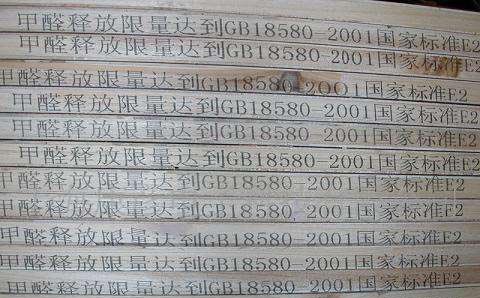 甲醛释放限量达到GB18580-2001国家标准E2
甲醛释放限量达到GB18580-2001国家标准E2
甲醛释放限量达到GB18580-2001国家标准E2
甲醛释放限量达到GB18580-2001国家标准E2
甲醛释放限量达到GB18580-2001国家标准E2
甲醛释放限量达到GB18580-2001国家标准E2
甲醛释放限量达到GB18580-2001国家标准E2
甲醛释放限量达到GB18580-2001国家标准E2
甲醛释放限量达到GB18580-2001国家标准E2
甲醛释放限量达到GB18580-2001国家标准E2
甲醛释放限量达到GB18580-2001国家标准E2